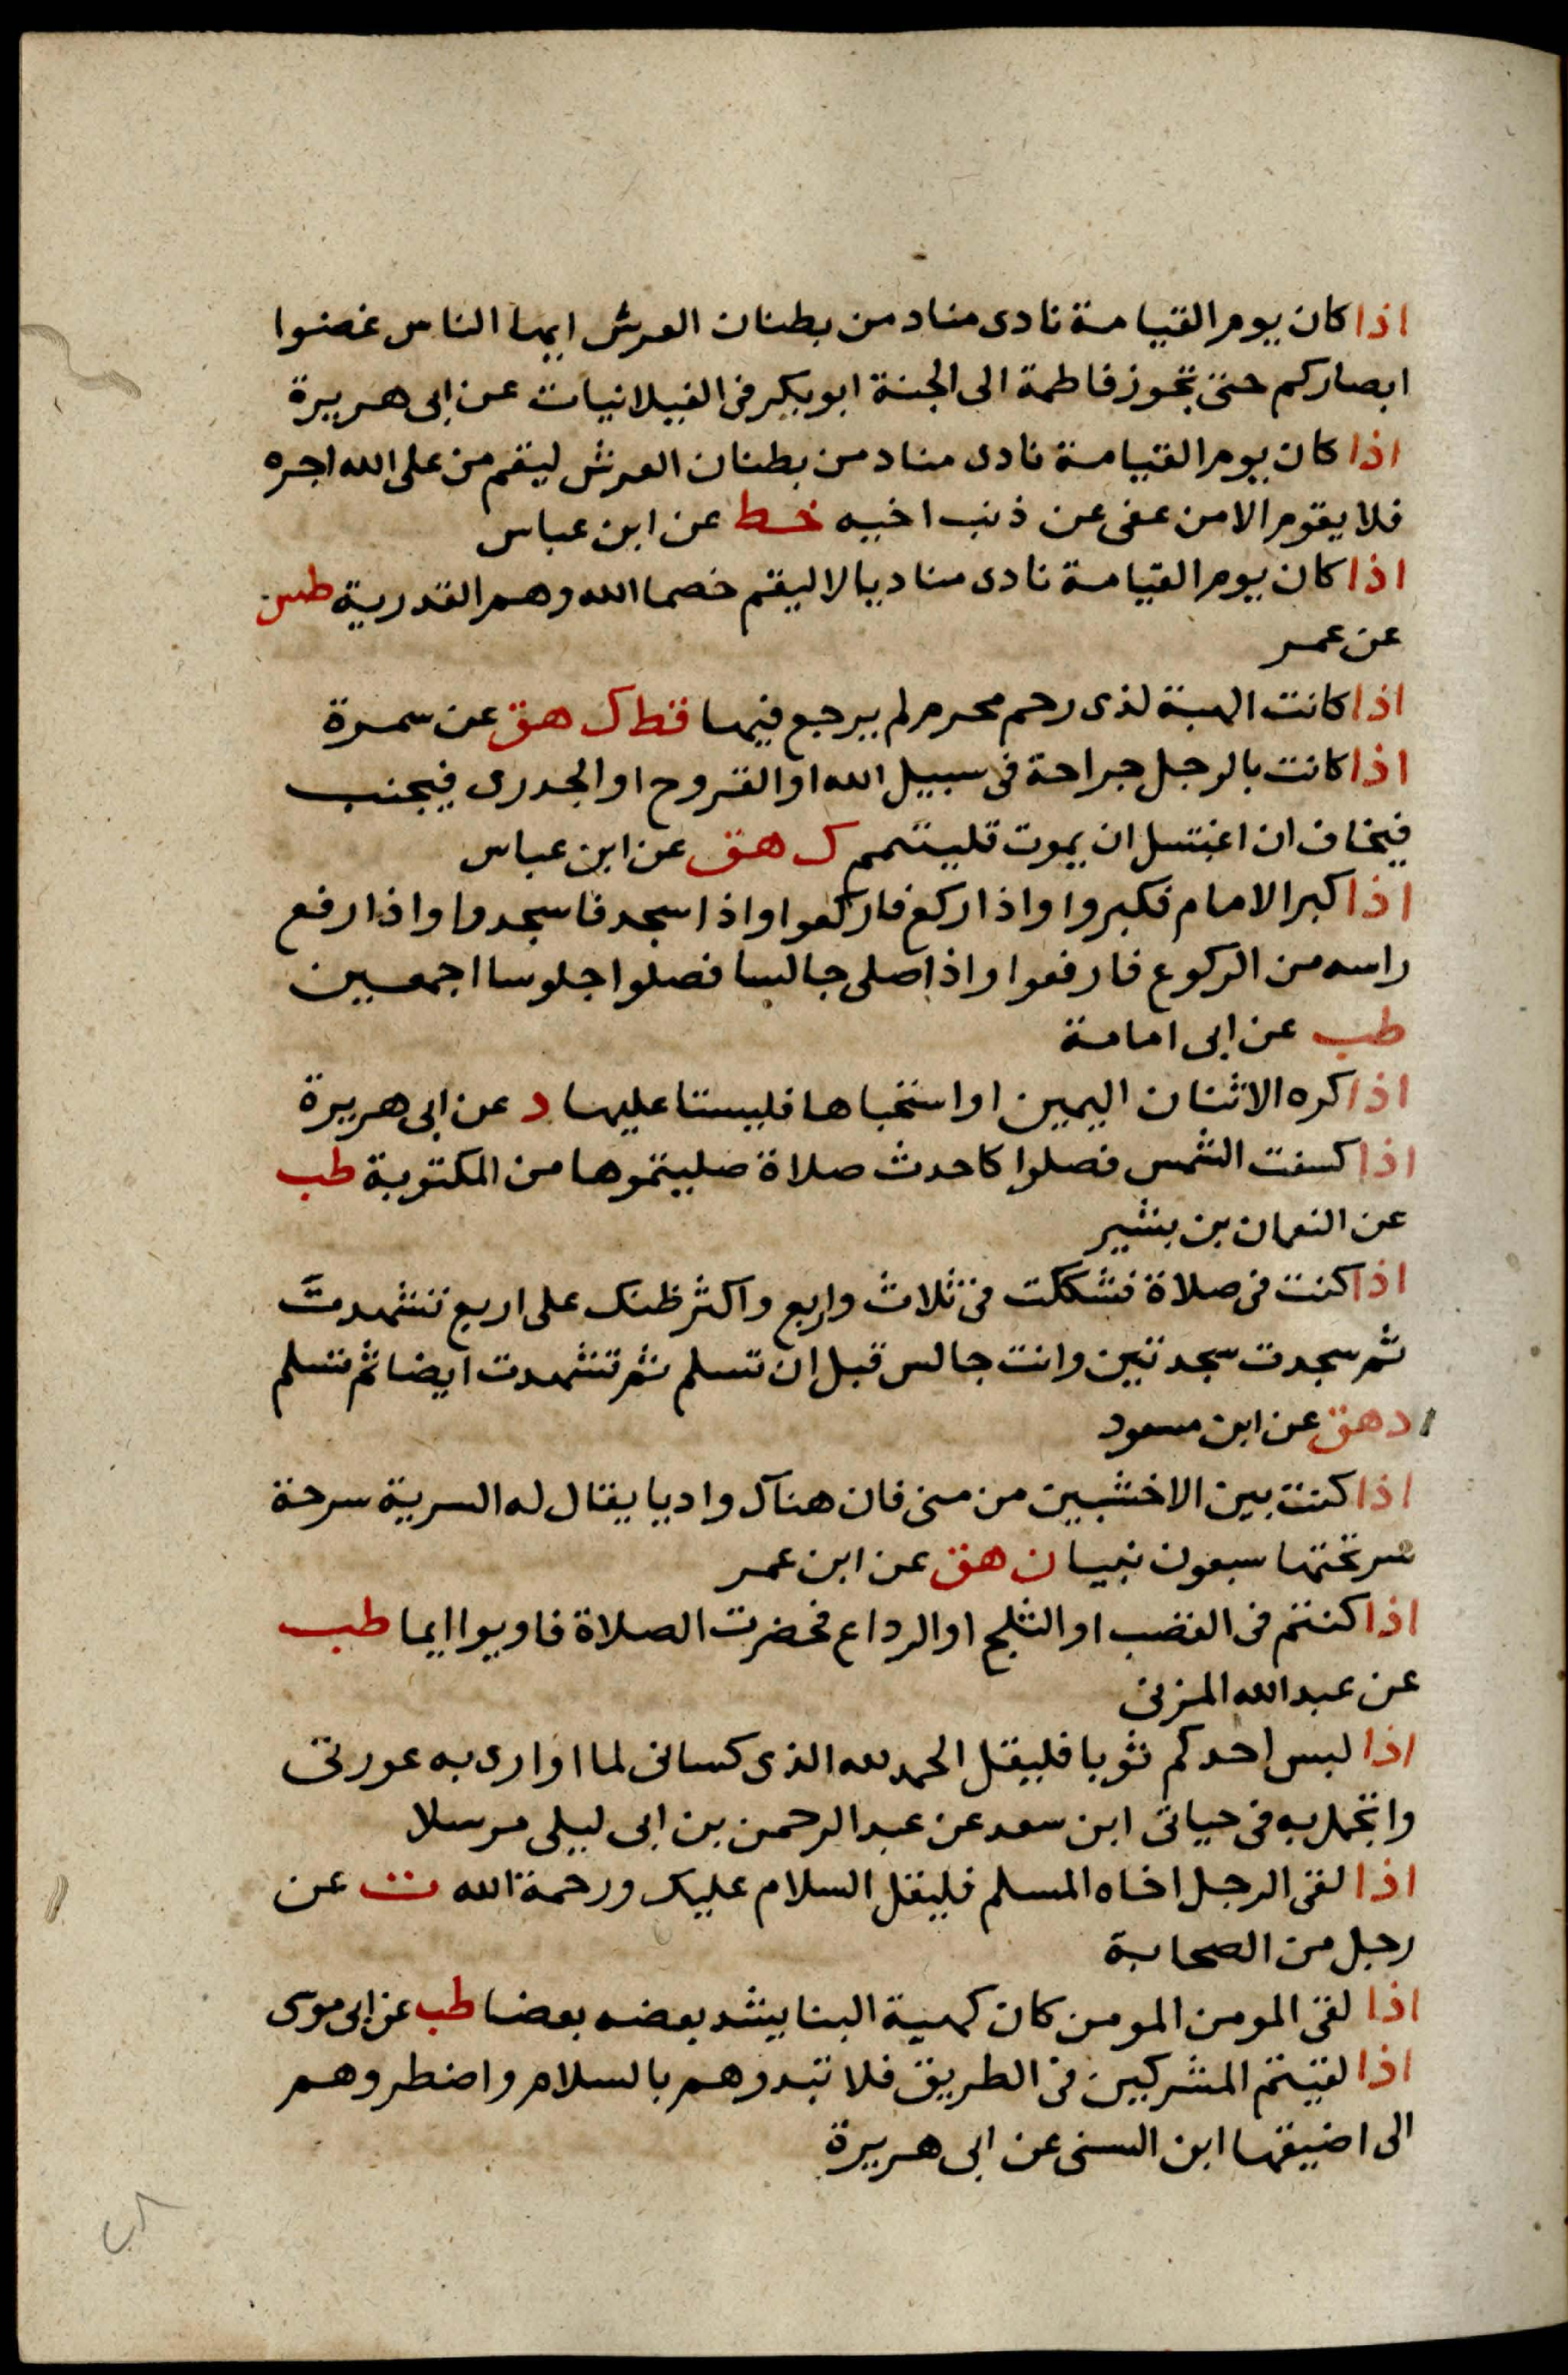 اذا كان يوم القيامة نادى مناد من بطنان العرش ايها الناس غضوا
ابصاركم حتى تجوز فاطمة الى الجنة ابوبكر فى الغيلانيات عن ابى هريرة
اذا كان يوم القيامة نادى مناد من بطنان العرش ليقم من على الله اجره
فلا يقوم الا من عفى عن ذنب اخيه خط عن ابن عباس
اذا كان يوم القيامة نادى مناديا لا ليقم خصما الله وهم القدرية طس
عن عمر
اذا كانت الهبة لذى رحم محرم لم يرجع فيها قط ك هق عن سمرة
اذا كانت بالرجل جراحة فى سبيل الله او القروح او الجدرى فيجنب
فيخاف ان اغتسل ان يموت فليتمم ك هق عن ابن عباس
اذا كبر الامام فكبروا واذا ركع فاركعوا واذا سجد فاسجدوا واذا رفع
راسه من الركوع فارفعوا واذا صلى جالسا فصلوا جلوسا اجمعين
طب عن ابى امامة
اذا كره الاثنان اليمين او استحباها فليستا عليها د عن ابى هريرة
اذا كسفت الشمس فصلوا كاحدث صلاة صليتموها من المكتوبة طب
عن النعمان بن بشير
اذا كنت فى صلاة فشككت فى ثلاث واربع واكثر ظنك على اربع تشهدت
ثم سجدت سجدتين وانت جالس قبل ان تسلم ثم تشهدت ايضا ثم تسلم
د هق عن ابن مسعود
اذا كنت بين الاخشبين من منى فان هناك واديا يقال له السرية سرحة
سر تحتها سبعون نبيا ن هق عن ابن عمر
اذا كنتم فى القضب او الثلج او الرداع فحضرت الصلاة فاوميوا ايما طب
عن عبد الله المزنى
اذا لبس احدكم ثوبا فليقل الحمد لله الذى كسانى لما اوارى به عورتى
واتجمل به فى حياتى ابن سعد عن عبد الرحمن بن ابى ليلى مرسلا
اذا لقى الرجل اخاه المسلم فليقل السلام عليك ورحمة الله ت عن
رجل من الصحابة
اذا لقى المومن المومن كان كهية البنا يشد بعضه بعضا طب عن ابى موسى
اذا لقيتم المشركين فى الطريق فلا تبدوهم بالسلام واضطروهم
الى اضيقها ابن السنى عن ابى هريرة